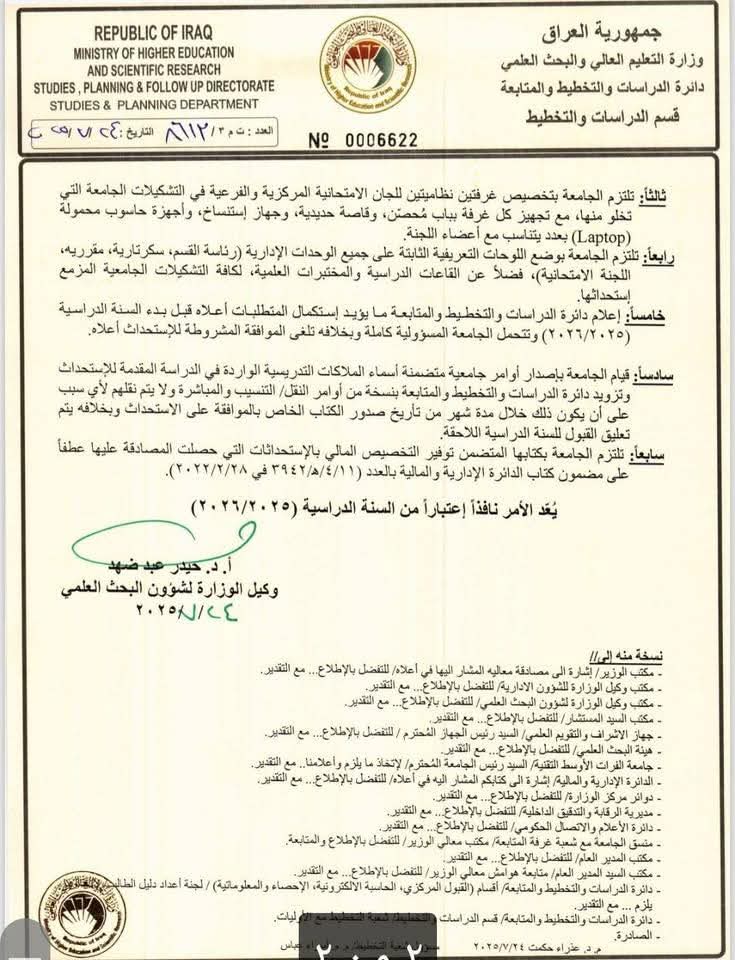 REPUBLIC OF IRAQ
MINISTRY OF HIGHER EDUCATION
AND SCIENTIFIC RESEARCH
STUDIES , PLANNING & FOLLOW UP DIRECTORATE
STUDIES & PLANNING DEPARTMENT
العدد: ت م ٣/ ٨٦١٢ التاريخ:
Nº 0006622
جمهورية العراق
وزارة التعليم العالي والبحث العلمي
دائرة الدراسات والتخطيط والمتابعة
قسم الدراسات والتخطيط
ثالثاً: تلتزم الجامعة بتخصيص غرفتين نظاميتين للجان الامتحانية المركزية والفرعية في التشكيلات الجامعة التي
تخلو منها، مع تجهيز كل غرفة بباب مُحصّن، وقاصة حديدية، وجهاز إستنساخ، وأجهزة حاسوب محمولة
(Laptop) بعدد يتناسب مع أعضاء اللجنة.
رابعاً: تلتزم الجامعة بوضع اللوحات التعريفية الثابتة على جميع الوحدات الإدارية (رئاسة القسم، سكرتارية، مقرريه،
اللجنة الامتحانية)، فضلاً عن القاعات الدراسية والمختبرات العلمية، لكافة التشكيلات الجامعية المزمع
إستحداثها.
خامساً: إعلام دائرة الدراسات والتخطيط والمتابعة ما يؤيد إستكمال المتطلبات أعلاه قبل بدء السنة الدراسية
(٢٠٢٦/٢٠٢٥) وتتحمل الجامعة المسؤولية كاملة وبخلافه تلغى الموافقة المشروطة للإستحداث أعلاه.
سادساً: قيام الجامعة بإصدار أوامر جامعية متضمنة أسماء الملاكات التدريسية الواردة في الدراسة المقدمة للإستحداث
وتزويد دائرة الدراسات والتخطيط والمتابعة بنسخة من أوامر النقل/ التنسيب والمباشرة ولا يتم نقلهم لأي سبب
على أن يكون ذلك خلال مدة شهر من تأريخ صدور الكتاب الخاص بالموافقة على الاستحداث وبخلافه يتم
تعليق القبول للسنة الدراسية اللاحقة.
سابعاً: تلتزم الجامعة بكتابها المتضمن توفير التخصيص المالي بالإستحداثات التي حصلت المصادقة عليها عطفاً
على مضمون كتاب الدائرة الإدارية والمالية بالعدد (٣٩٤٢/هـ/٤/١١ في ٢٠٢٢/٢/٢٨).
يُعّد الأمر نافذاً إعتباراً من السنة الدراسية (٢٠٢٦/٢٠٢٥)
أ. د. حيدر عبد ضهد
وكيل الوزارة لشؤون البحث العلمي
٢٠٢٥/٧/٢٤
نسخة منه إلى//
- مكتب الوزير/ إشارة الى مصادقة معاليه المشار اليها في أعلاه/ للتفضل بالإطلاع... مع التقدير.
- مكتب وكيل الوزارة للشؤون الادارية/ للتفضل بالإطلاع... مع التقدير.
- مكتب وكيل الوزارة لشؤون البحث العلمي/ للتفضل بالإطلاع... مع التقدير.
- مكتب السيد المستشار/ للتفضل بالإطلاع... مع التقدير.
- جهاز الاشراف والتقويم العلمي/ السيد رئيس الجهاز المُحترم / للتفضل بالإطلاع... مع التقدير.
- هيئة البحث العلمي/ للتفضل بالإطلاع... مع التقدير.
- جامعة الفرات الأوسط التقنية/ السيد رئيس الجامعة المُحترم/ لإتخاذ ما يلزم وأعلامنا.. مع التقدير.
- الدائرة الإدارية والمالية/ إشارة الى كتابكم المشار اليه في أعلاه/ للتفضل بالإطلاع... مع التقدير.
- دوائر مركز الوزارة/ للتفضل بالإطلاع... مع التقدير.
- مديرية الرقابة والتدقيق الداخلية/ للتفضل بالإطلاع... مع التقدير.
- دائرة الأعلام والاتصال الحكومي/ للتفضل بالإطلاع... مع التقدير.
- منسق الجامعة مع شعبة غرفة المتابعة/ مكتب معالي الوزير/ للتفضل بالإطلاع والمتابعة.
- مكتب المدير العام/ للتفضل بالإطلاع... مع التقدير.
- مكتب السيد المدير العام/ متابعة هوامش معالي الوزير/ للتفضل بالإطلاع... مع التقدير.
- دائرة الدراسات والتخطيط والمتابعة/ أقسام (القبول المركزي، الحاسبة الالكترونية، الإحصاء والمعلوماتية) / لجنة أعداد دليل
يلزم ... مع التقدير.
- دائرة الدراسات والتخطيط والمتابعة/ قسم الدراسات والتخطيط/ شعبة التخطيط مع الأوليات.
- الصادرة.
م. د. عذراء حكمت ٢٠٢٥/٧/٢٤